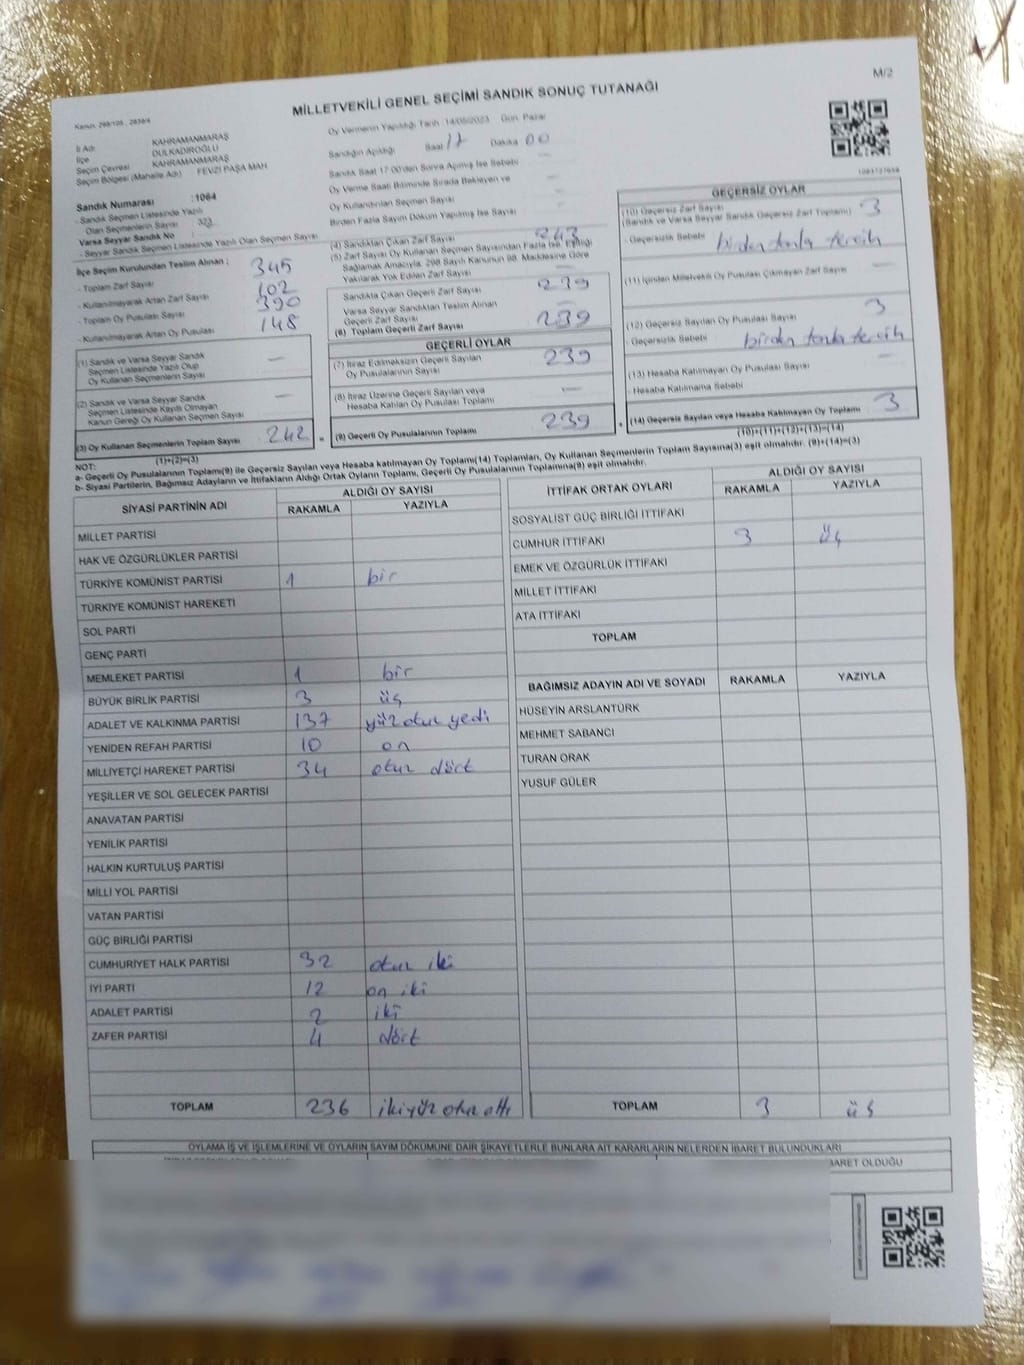 M/2
MİLLETVEKİLİ GENEL SEÇİMİ SANDIK SONUÇ TUTANAĞI
Kanun. 298/105 , 2839/4
İl Adı KAHRAMANMARAŞ
İlçe DULKADİROĞLU
Seçim Çevresi KAHRAMANMARAŞ
Seçim Bölgesi (Mahalle Adı) FEVZİ PAŞA MAH
Oy Vermenin Yapıldığı Tarih :14/05/2023 Gün: Pazar
Sandığın Açıldığı Saat 17 Dakika 00
Sandık Saat 17:00'den Sonra Açılmış İse Sebebi —
Oy Verme Saati Bitiminde Sırada Bekleyen ve —
Oy Kullandırılan Seçmen Sayısı
Birden Fazla Sayım Döküm Yapılmış İse Sayısı —
Sandık Numarası :1064
- Sandık Seçmen Listesinde Yazılı
Olan Seçmenlerin Sayısı : 323
Varsa Seyyar Sandık No
- Seyyar Sandık Seçmen Listesinde Yazılı Olan Seçmen Sayısı
İlçe Seçim Kurulundan Teslim Alınan ;
- Toplam Zarf Sayısı 345
- Kullanılmayarak Artan Zarf Sayısı 102
- Toplam Oy Pusulası Sayısı 390
- Kullanılmayarak Artan Oy Pusulası 148
(1) Sandık ve Varsa Seyyar Sandık
Seçmen Listesinde Yazılı Olup
Oy Kullanan Seçmenlerin Sayısı —
(2) Sandık ve Varsa Seyyar Sandık
Seçmen Listesinde Kayıtlı Olmayan
Kanun Gereği Oy Kullanan Seçmen Sayısı —
(3) Oy Kullanan Seçmenlerin Toplam Sayısı 242
(1)+(2)=(3)
(4) Sandıktan Çıkan Zarf Sayısı 243
(5) Zarf Sayısı Oy Kullanan Seçmen Sayısından Fazla İse, Eşitliği
Sağlamak Amacıyla, 298 Sayılı Kanunun 98. Maddesine Göre
Yakılarak Yok Edilen Zarf Sayısı —
Sandıkta Çıkan Geçerli Zarf Sayısı 239
Varsa Seyyar Sandıktan Teslim Alınan
Geçerli Zarf Sayısı —
(6) Toplam Geçerli Zarf Sayısı 239
GEÇERLİ OYLAR
(7) İtiraz Edilmeksizin Geçerli Sayılan
Oy Pusulalarının Sayısı 239
(8) İtiraz Üzerine Geçerli Sayılan veya
Hesaba Katılan Oy Pusulası Toplamı —
= (9) Geçerli Oy Pusulalarının Toplamı 239
GEÇERSİZ OYLAR
(10) Geçersiz Zarf Sayısı
(Sandık ve Varsa Seyyar Sandık Geçersiz Zarf Toplamı) 3
- Geçersizlik Sebebi birden fazla tercih
(11) İçinden Milletvekili Oy Pusulası Çıkmayan Zarf Sayısı —
(12) Geçersiz Sayılan Oy Pusulası Sayısı 3
- Geçersizlik Sebebi birden fazla tercih
(13) Hesaba Katılmayan Oy Pusulası Sayısı —
- Hesaba Katılmama Sebebi
+ (14) Geçersiz Sayılan veya Hesaba Katılmayan Oy Toplamı 3
(10)+(11)+(12)+(13)=(14)
NOT:
a- Geçerli Oy Pusulalarının Toplamı(9) ile Geçersiz Sayılan veya Hesaba katılmayan Oy Toplamı(14) Toplamları, Oy Kullanan Seçmenlerin Toplam Sayısına(3) eşit olmalıdır. (9)+(14)=(3)
b- Siyasi Partilerin, Bağımsız Adayların ve İttifakların Aldığı Ortak Oyların Toplamı, Geçerli Oy Pusulalarının Toplamına(9) eşit olmalıdır.
SİYASİ PARTİNİN ADI ALDIĞI OY SAYISI
RAKAMLA YAZIYLA
MİLLET PARTİSİ
HAK VE ÖZGÜRLÜKLER PARTİSİ
TÜRKİYE KOMÜNİST PARTİSİ 1 bir
TÜRKİYE KOMÜNİST HAREKETİ
SOL PARTİ
GENÇ PARTİ
MEMLEKET PARTİSİ 1 bir
BÜYÜK BİRLİK PARTİSİ 3 üç
ADALET VE KALKINMA PARTİSİ 137 yüz otuz yedi
YENİDEN REFAH PARTİSİ 10 on
MİLLİYETÇİ HAREKET PARTİSİ 34 otuz dört
YEŞİLLER VE SOL GELECEK PARTİSİ
ANAVATAN PARTİSİ
YENİLİK PARTİSİ
HALKIN KURTULUŞ PARTİSİ
MİLLİ YOL PARTİSİ
VATAN PARTİSİ
GÜÇ BİRLİĞİ PARTİSİ
CUMHURİYET HALK PARTİSİ 32 otuz iki
İYİ PARTİ 12 on iki
ADALET PARTİSİ 2 iki
ZAFER PARTİSİ 4 dört
TOPLAM 236 ikiyüz otuz altı
İTTİFAK ORTAK OYLARI ALDIĞI OY SAYISI
RAKAMLA YAZIYLA
SOSYALİST GÜÇ BİRLİĞİ İTTİFAKI
CUMHUR İTTİFAKI 3 üç
EMEK VE ÖZGÜRLÜK İTTİFAKI
MİLLET İTTİFAKI
ATA İTTİFAKI
TOPLAM
BAĞIMSIZ ADAYIN ADI VE SOYADI RAKAMLA YAZIYLA
HÜSEYİN ARSLANTÜRK
MEHMET SABANCI
TURAN ORAK
YUSUF GÜLER
TOPLAM 3 üç
OYLAMA İŞ VE İŞLEMLERİNE VE OYLARIN SAYIM DÖKÜMÜNE DAİR ŞİKAYETLERLE BUNLARA AİT KARARLARIN NELERDEN İBARET BULUNDUKLARI
BARET OLDUĞU